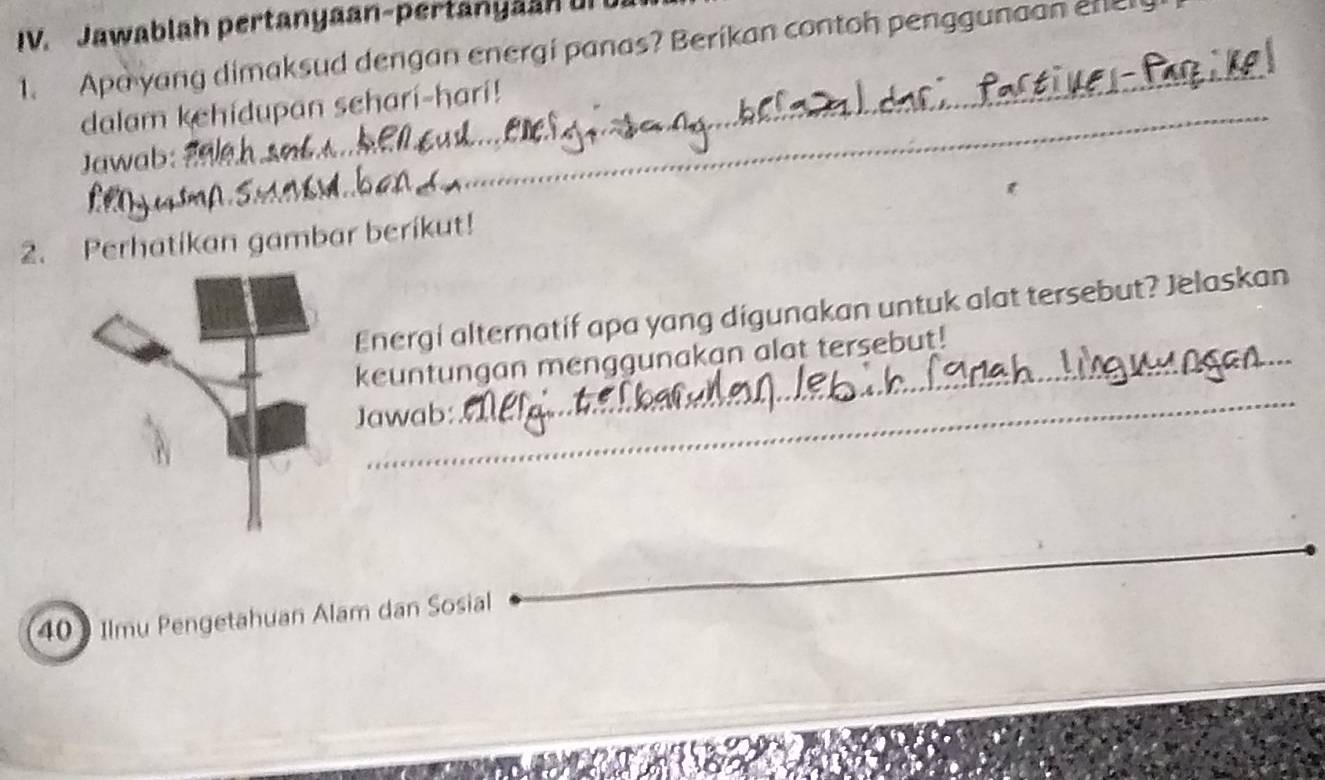 IV. Jawablah pertanyaan-pertanyaan
1. Apa yang dimaksud dengan energi panas? Berikan contoh penggunaan
dalam kehidupan sehari-hari!
Jawab: salah satu bentuk energi yang berasal dari Partikel-Partikel
Penyusun suatu benda
2. Perhatikan gambar berikut!
Energi alternatif apa yang digunakan untuk alat tersebut? Jelaskan
keuntungan menggunakan alat tersebut!
Jawab: energi terbarukan lebih ramah lingkungan
40 Ilmu Pengetahuan Alam dan Sosial